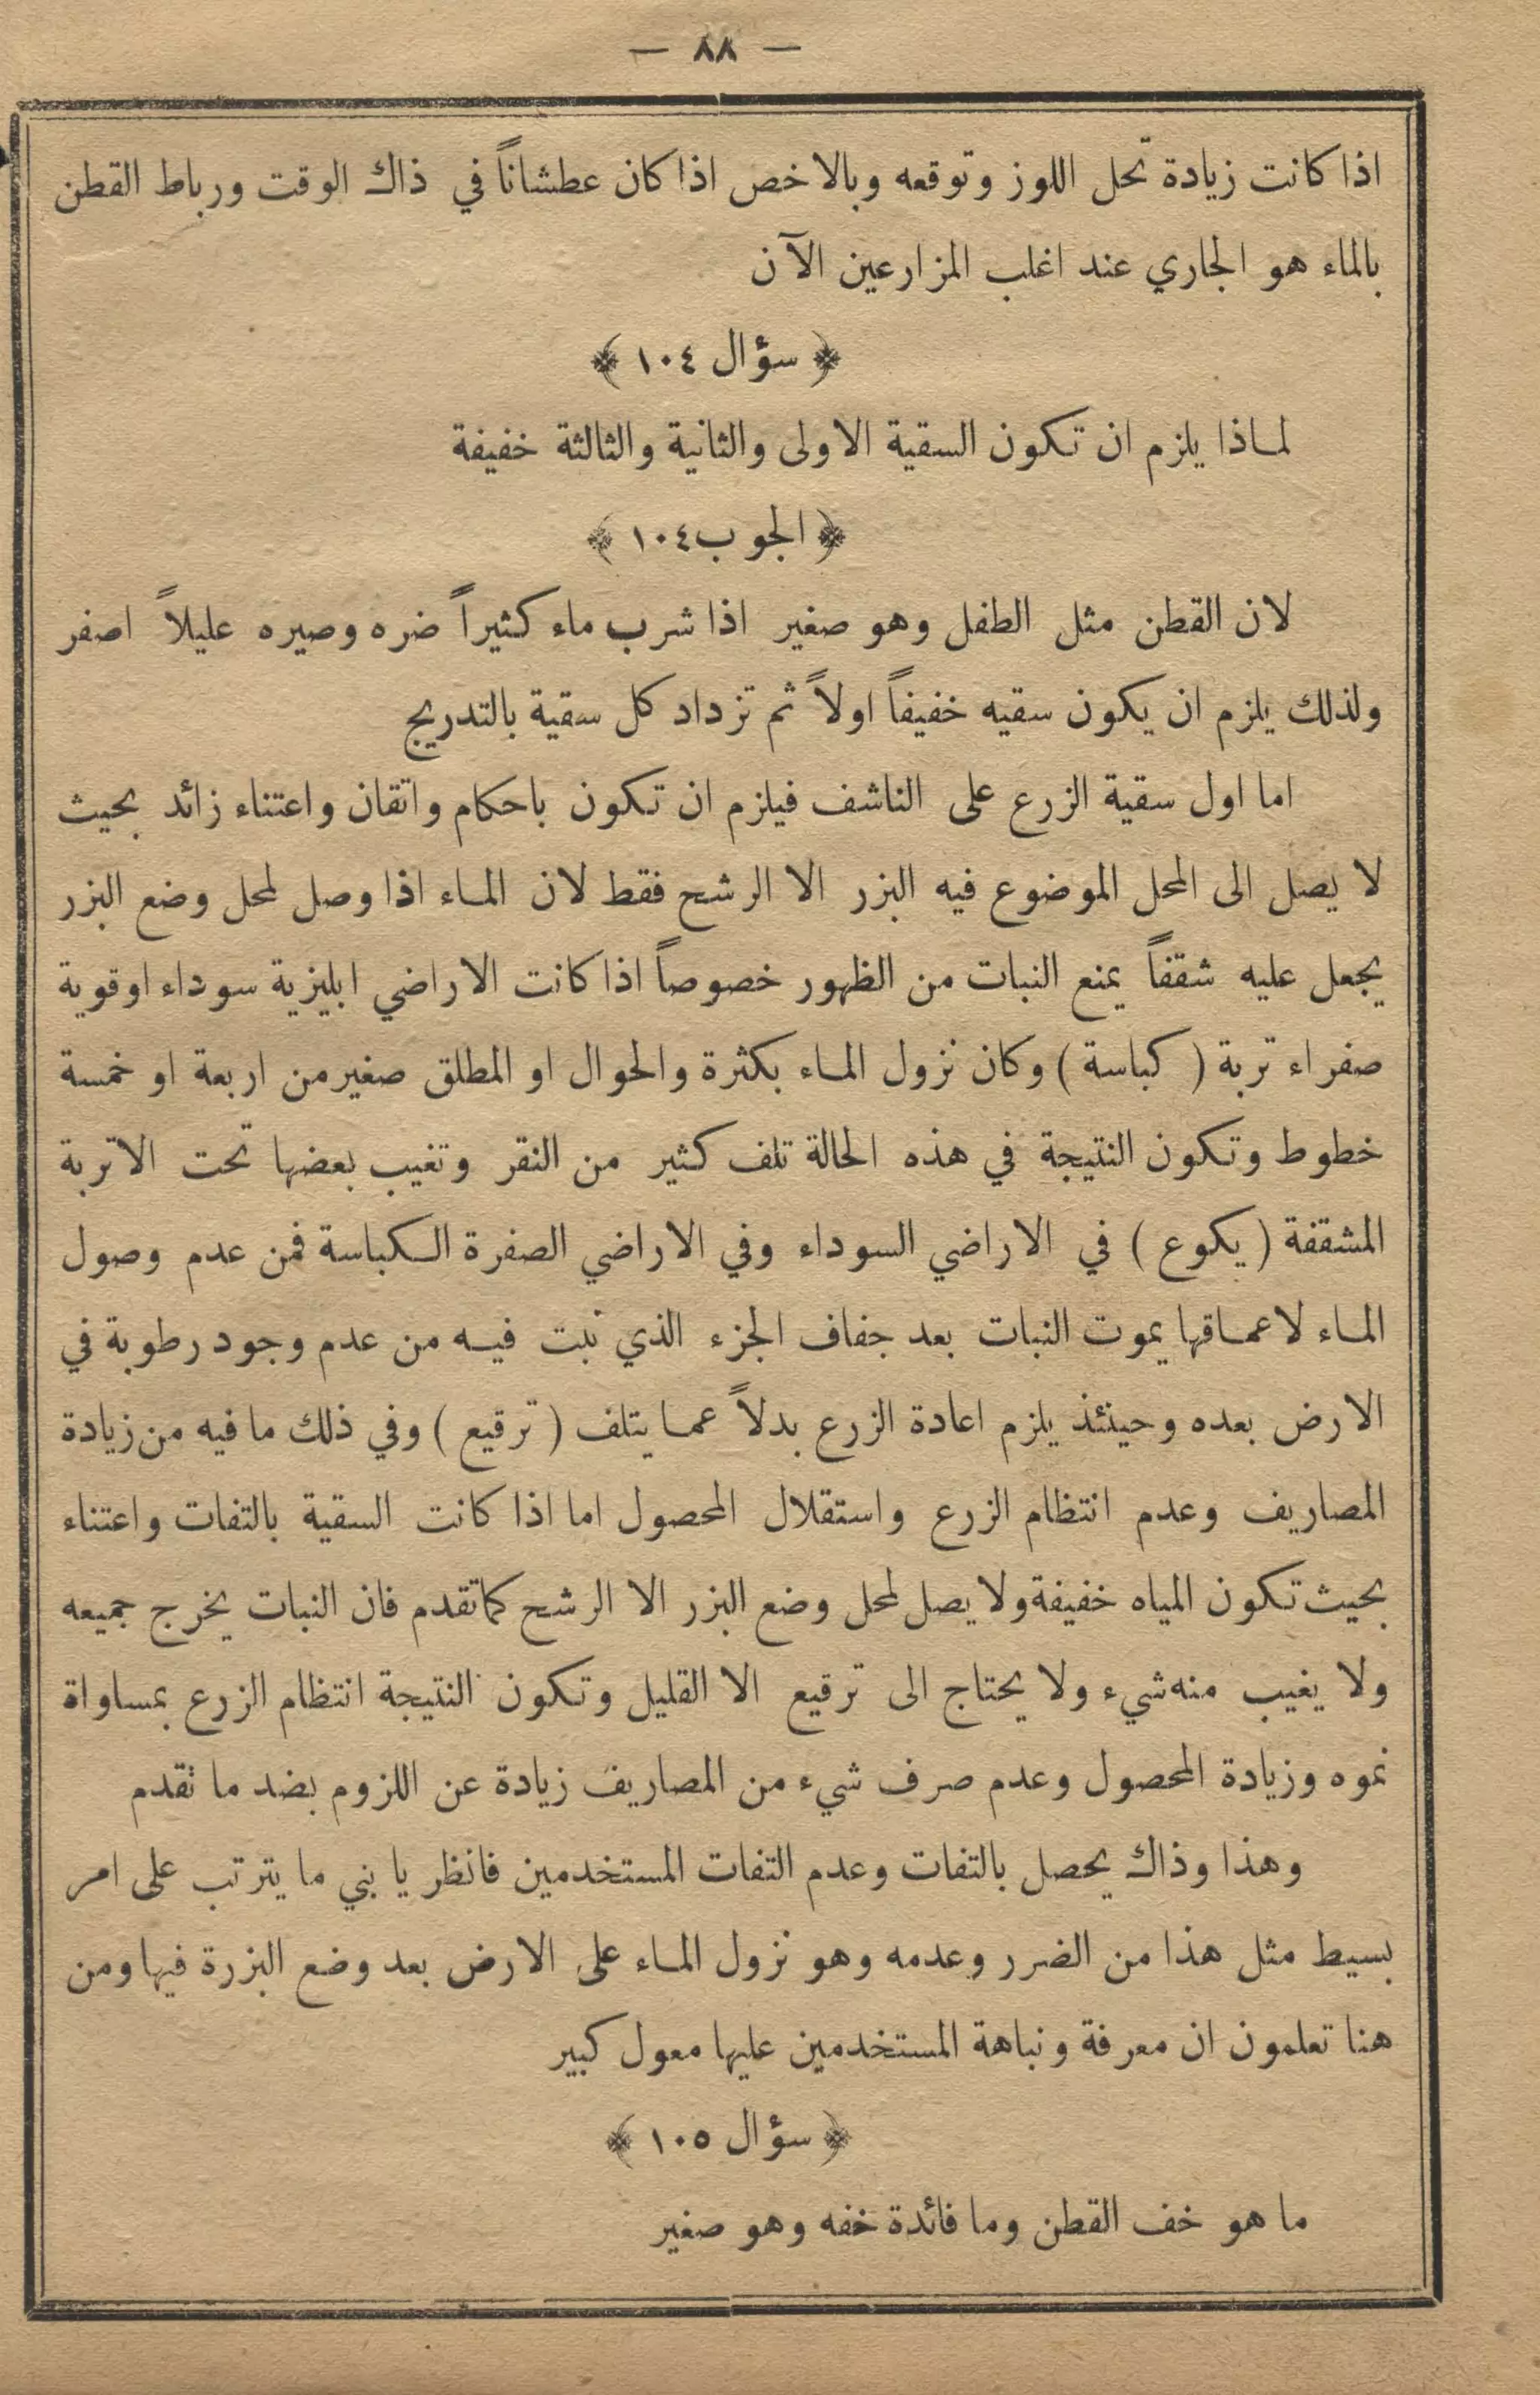 — ٨٨ —
اذا كانت زيادة تحل اللوز وتوقعه وبالاخص اذا كان عطشاناً في ذاك الوقت ورباط القطن
بالماء هو الجاري عند اغلب المزارعين الآن
﴿ سؤال ١٠٤ ﴾
لماذا يلزم ان تكون السقية الاولى والثانية والثالثة خفيفة
﴿ الجوب ١٠٤ ﴾
لان القطن مثل الطفل وهو صغير اذا شرب ماء كثيراً ضره وصيره عليلاً اصفر
ولذلك يلزم ان يكون سقيه خفيفاً اولاً ثم تزداد كل سقية بالتدريج
اما اول سقية الزرع على الناشف فيلزم ان تكون باحكام واتقان واعتناء زائد بحيث
لا يصل الى المحل الموضوع فيه البزر الا الرشح فقط لان الماء اذا وصل لمحل وضع البزر
يجعل عليه شقفاً يمنع النبات من الظهور خصوصاً اذا كانت الاراضي ابليزية سوداء اوقوية
صفراء تربة ( كباسة ) وكان نزول الماء بكثرة والحوال او المطلق صغير من اربعة او خمسة
خطوط وتكون النتيجة في هذه الحالة تلف كثير من النقر وتغيب بعضها تحت الاتربة
المشققة ( يكوع ) في الاراضي السوداء وفي الاراضي الصفرة الكباسة فمن عدم وصول
الماء لاعماقها يموت النبات بعد جفاف الجزء الذي نبت فيه من عدم وجود رطوبة في
الارض بعده وحينئذ يلزم اعادة الزرع بدلاً عما يتلف ( ترقيع ) وفي ذلك ما فيه من زيادة
المصاريف وعدم انتظام الزرع واستقلال المحصول اما اذا كانت السقية بالتفات واعتناء
بحيث تكون المياه خفيفة ولا يصل لمحل وضع البزر الا الرشح كما تقدم فان النبات يخرج جميعه
ولا يغيب منه شيء ولا يحتاج الى ترقيع الا القليل وتكون النتيجة انتظام الزرع بمساواة
نموه وزيادة المحصول وعدم صرف شيء من المصاريف زيادة عن اللزوم بضد ما تقدم
وهذا وذاك يحصل بالتفات وعدم التفات المستخدمين فانظر يا بني ما يترتب على امر
بسيط مثل هذا من الضرر وعدمه وهو نزول الماء على الارض بعد وضع البزرة فيها ومن
هنا تعلمون ان معرفة ونباهة المستخدمين عليها معول كبير
﴿ سؤال ١٠٥ ﴾
ما هو خف القطن وما فائدة خفه وهو صغير